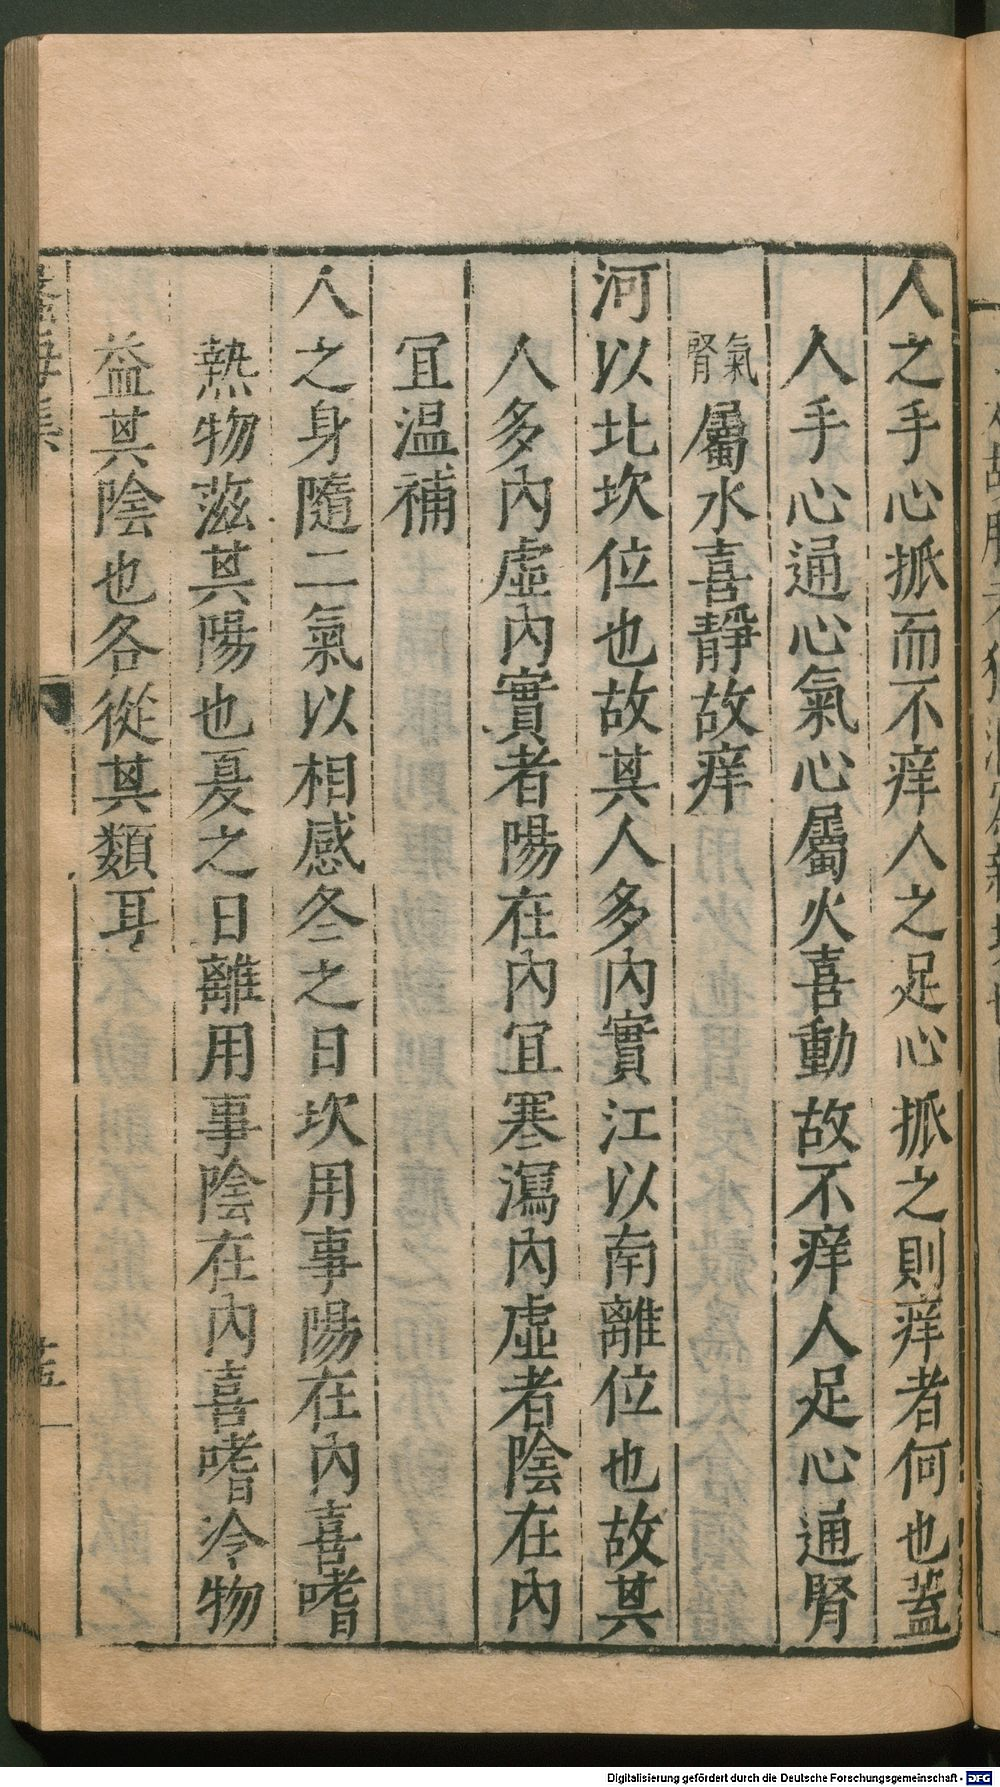 人之手心抓而不痒人之足心抓之則痒者何也蓋
人手心通心氣心屬火喜動故不痒人足心通腎
腎氣屬水喜靜故痒
河以北坎位也故其人多內實江以南離位也故其
人多內虛內實者陽在內宜寒瀉內虛者陰在內
宜温補
人之身隨二氣以相感冬之日坎用事陽在內喜嗜
熱物滋其陽也夏之日離用事陰在內喜嗜冷物
益其陰也各從其類耳
Digitalisierung gefördert durch die Deutsche Forschungsgemeinschaft - DFG